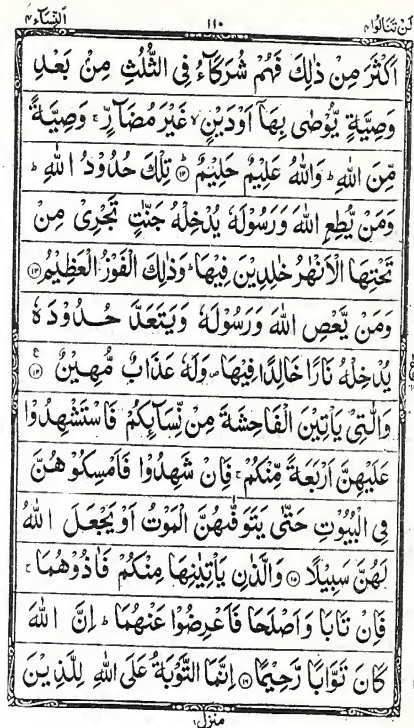 لن تنالوا ٤ ١١٠ النسآء ٤
اَكْثَرَ مِنْ ذٰلِكَ فَهُمْ شُرَكَآءُ فِى الثُّلُثِ مِنْ بَعْدِ
وَصِيَّةٍ يُّوْصٰى بِهَآ اَوْ دَيْنٍ ۙ غَيْرَ مُضَآرٍّ ۚ وَصِيَّةً
مِّنَ اللّٰهِ ؕ وَاللّٰهُ عَلِيْمٌ حَلِيْمٌ ؕ ﴿۱۲﴾ تِلْكَ حُدُوْدُ اللّٰهِ ؕ
وَمَنْ يُّطِعِ اللّٰهَ وَرَسُوْلَهٗ يُدْخِلْهُ جَنّٰتٍ تَجْرِىْ مِنْ
تَحْتِهَا الْاَنْهٰرُ خٰلِدِيْنَ فِيْهَا ؕ وَذٰلِكَ الْفَوْزُ الْعَظِيْمُ ﴿۱۳﴾
وَمَنْ يَّعْصِ اللّٰهَ وَرَسُوْلَهٗ وَيَتَعَدَّ حُدُوْدَهٗ
يُدْخِلْهُ نَارًا خَالِدًا فِيْهَا ۪ وَلَهٗ عَذَابٌ مُّهِيْنٌ ﴿۱۴﴾ ع
وَالّٰتِىْ يَاْتِيْنَ الْفَاحِشَةَ مِنْ نِّسَآئِكُمْ فَاسْتَشْهِدُوْا
عَلَيْهِنَّ اَرْبَعَةً مِّنْكُمْ ۚ فَاِنْ شَهِدُوْا فَاَمْسِكُوْهُنَّ
فِى الْبُيُوْتِ حَتّٰى يَتَوَفّٰهُنَّ الْمَوْتُ اَوْ يَجْعَلَ اللّٰهُ
لَهُنَّ سَبِيْلًا ﴿۱۵﴾ وَالَّذٰنِ يَاْتِيٰنِهَا مِنْكُمْ فَاٰذُوْهُمَا ۚ
فَاِنْ تَابَا وَاَصْلَحَا فَاَعْرِضُوْا عَنْهُمَا ؕ اِنَّ اللّٰهَ
كَانَ تَوَّابًا رَّحِيْمًا ﴿۱۶﴾ اِنَّمَا التَّوْبَةُ عَلَى اللّٰهِ لِلَّذِيْنَ
منزل ١